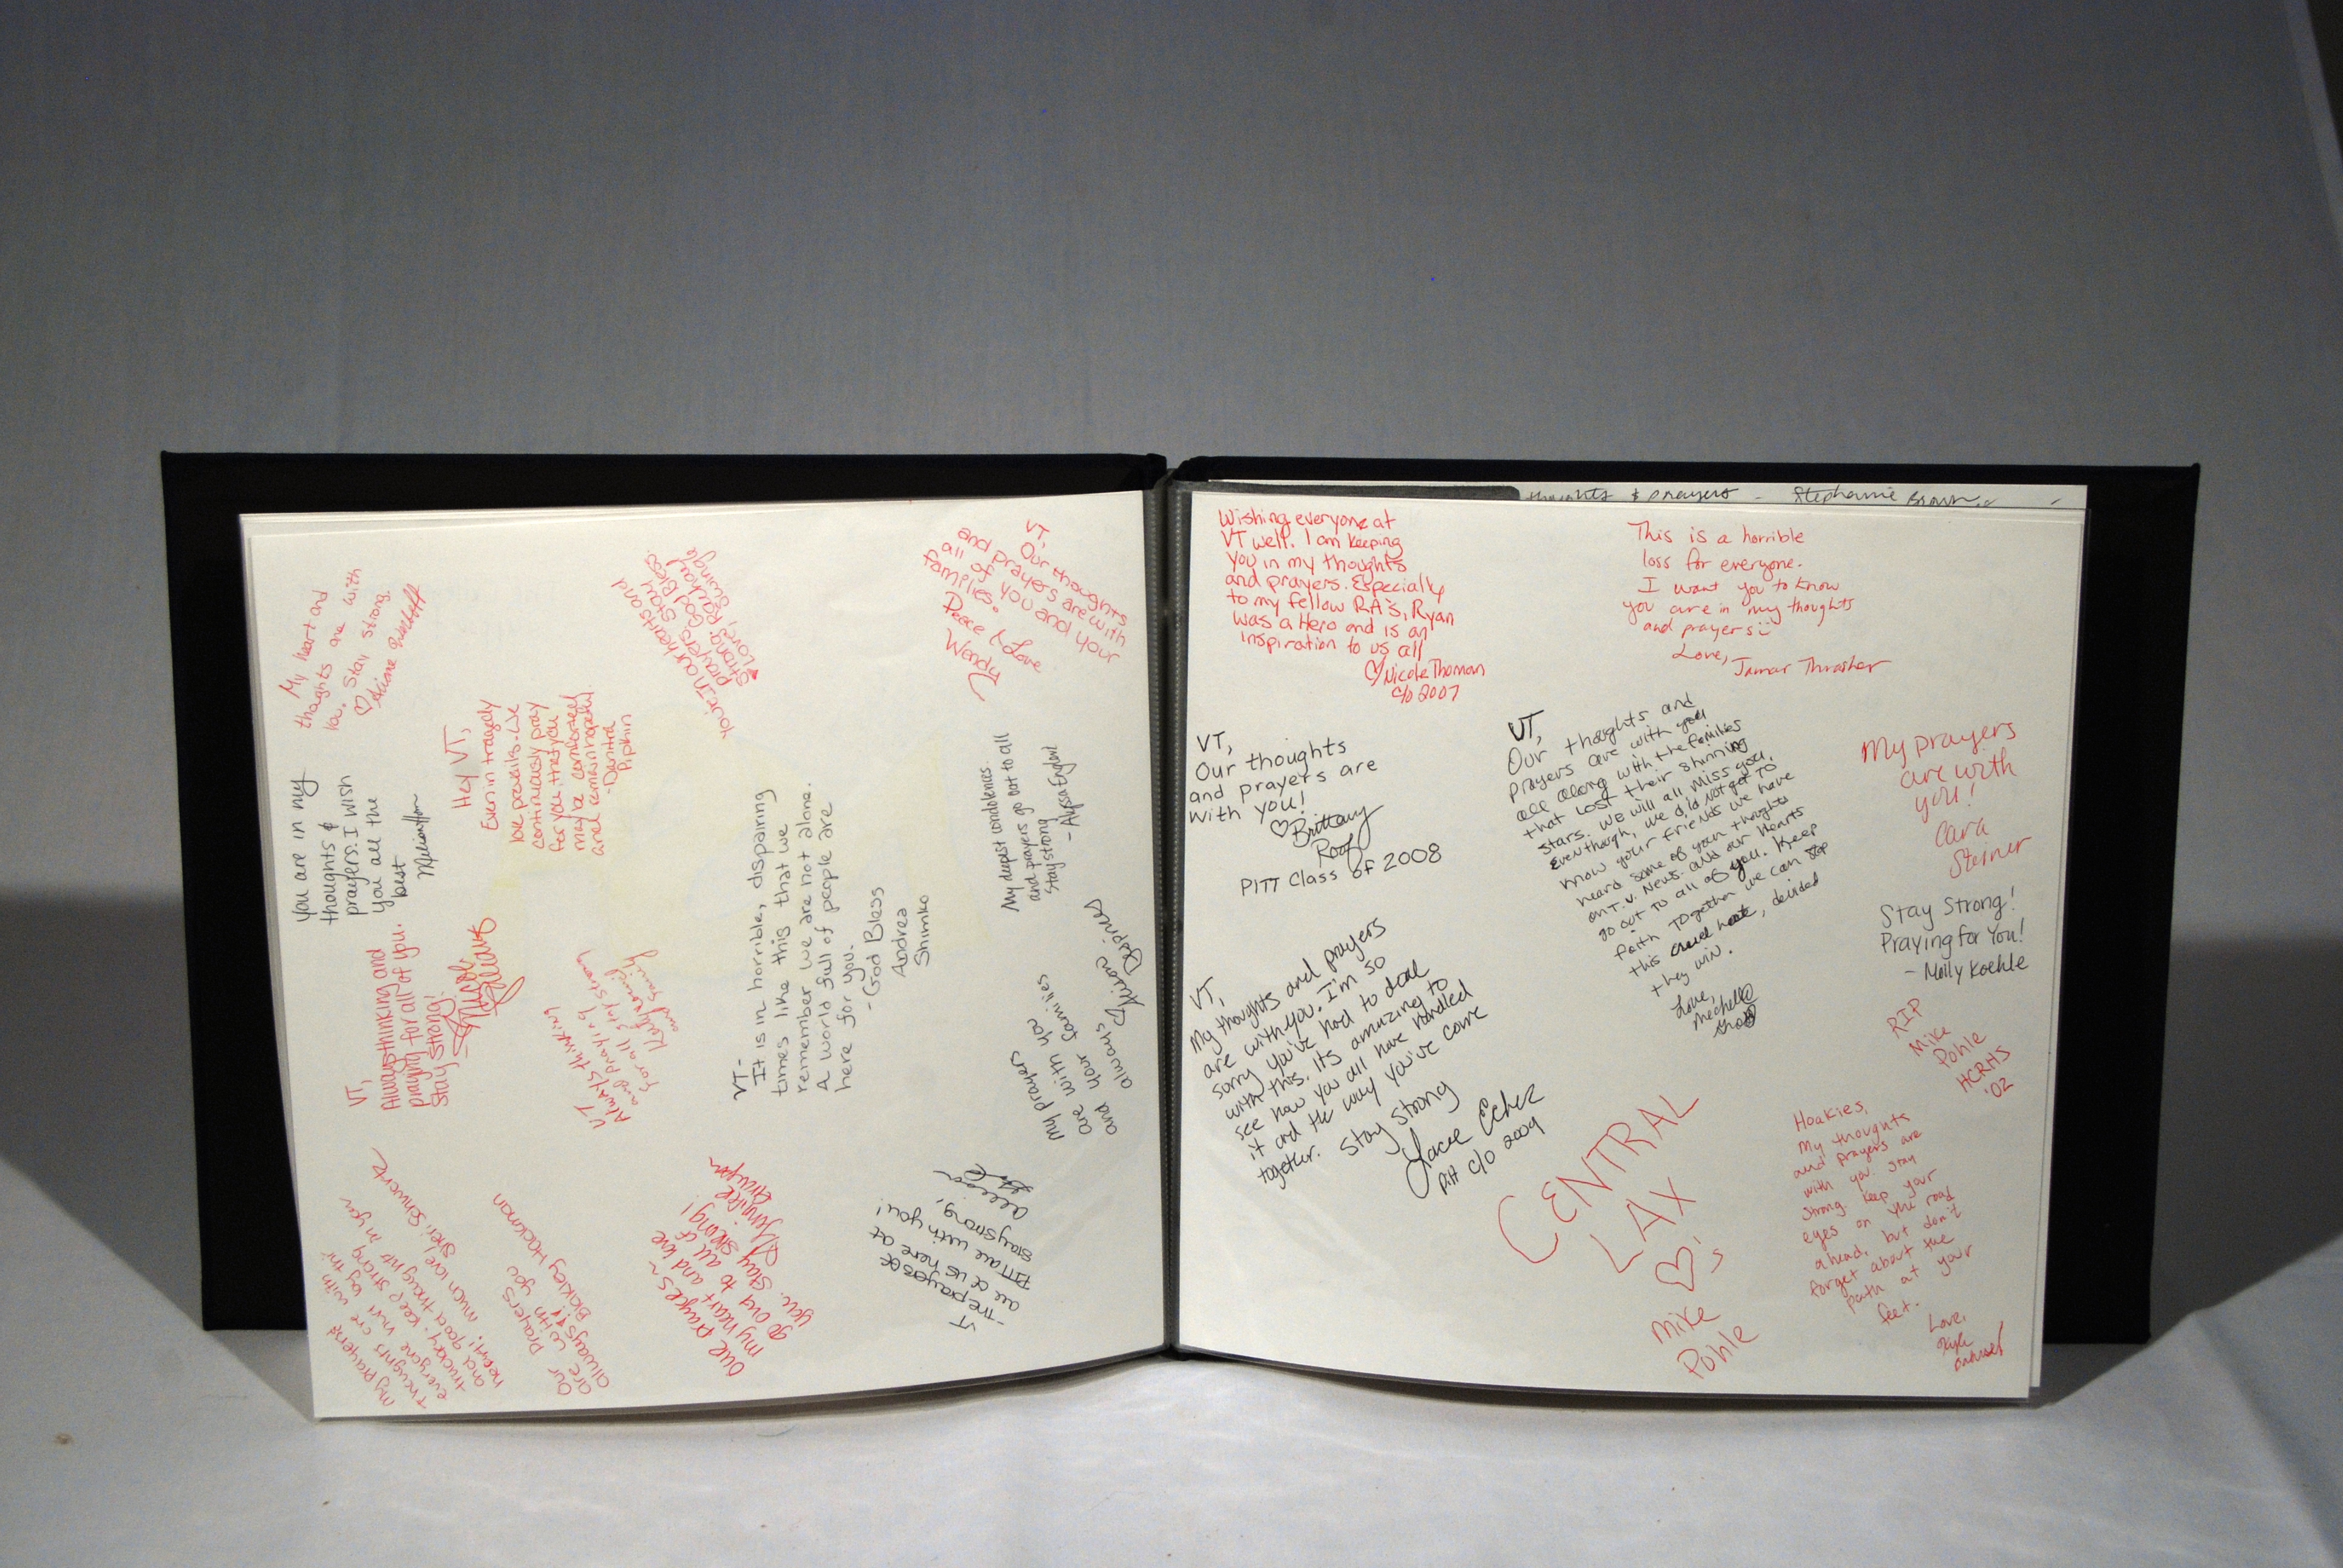 My heart and
thoughts are with
you. Stay strong.
You are in my
thoughts &
prayers. I wish
you all the
best
Hey VT,
Even in tragedy
love prevails. We
continuously pray
for you, that you
may be comforted
and remain hopeful.
- Danitra
Pipkin
VT,
Always thinking and
praying for all of you.
Stay strong!
Nicole
VT
Always thinking
and praying
for all. Stay strong
Your in our hearts and
prayers. Stay
strong. God Bless
Love, Rachael
VT,
Our thoughts
and prayers are with
all of you and your
families.
Peace & Love
Wendy
VT-
It is in horrible, dispairing
times like this that we
remember we are not alone.
A world full of people are
here for you.
- God Bless
Andrea
Shimko
My deepest condolences
and prayers go out to all
Stay strong
- Alysia England
My prayers
are with you
and your families
always
My prayers &
thoughts are with
everyone
Keep strong
and good thoughts
much love
Our prayers
are with you
always!
Blakley Hackman
Our prayers ~
my heart and love
go out to all of
you. Stay strong!
Jennifer
VT
- The prayers of
all of us here at
PITT are with you!
Stay strong,
thoughts & prayers - Stephanie Brown
Wishing everyone at
VT well. I am keeping
you in my thoughts
and prayers. Especially
to my fellow RA's, Ryan
was a Hero and is an
inspiration to us all
♡ Nicole Thomas
c/o 2007
This is a horrible
loss for everyone.
I want you to know
you are in my thoughts
and prayers
Love, Jamar Thrasher
VT,
Our thoughts
and prayers are
with you!
♡ Brittany
Roof
PITT Class of 2008
VT,
Our thoughts and
prayers are with you
all along with the families
that lost their shinning
stars. We will all miss you,
Eventhough, we did not get to
know your friends we have
heard some of your thoughts
on T.V. News. and our hearts
go out to all of you. Keep
faith Together we can stop
this cruel, decided
they win.
Love,
Mechelle
My prayers
are with
you!
Cara
Steiner
Stay Strong!
Praying for You!
- Molly Koehle
VT,
My thoughts and prayers
are with you. I'm so
sorry you've had to deal
with this. Its amazing to
see how you all have handled
it and the way you've come
together. Stay strong
Pitt c/o 2009
RIP
Mike
Pohle
HCRHS
'02
CENTRAL
LAX
♡'s
Mike
Pohle
Hoakies,
My thoughts
and prayers are
with you. Stay
strong. Keep your
eyes on the road
ahead, but don't
forget about the
path at your
feet.
Love,
Kyle